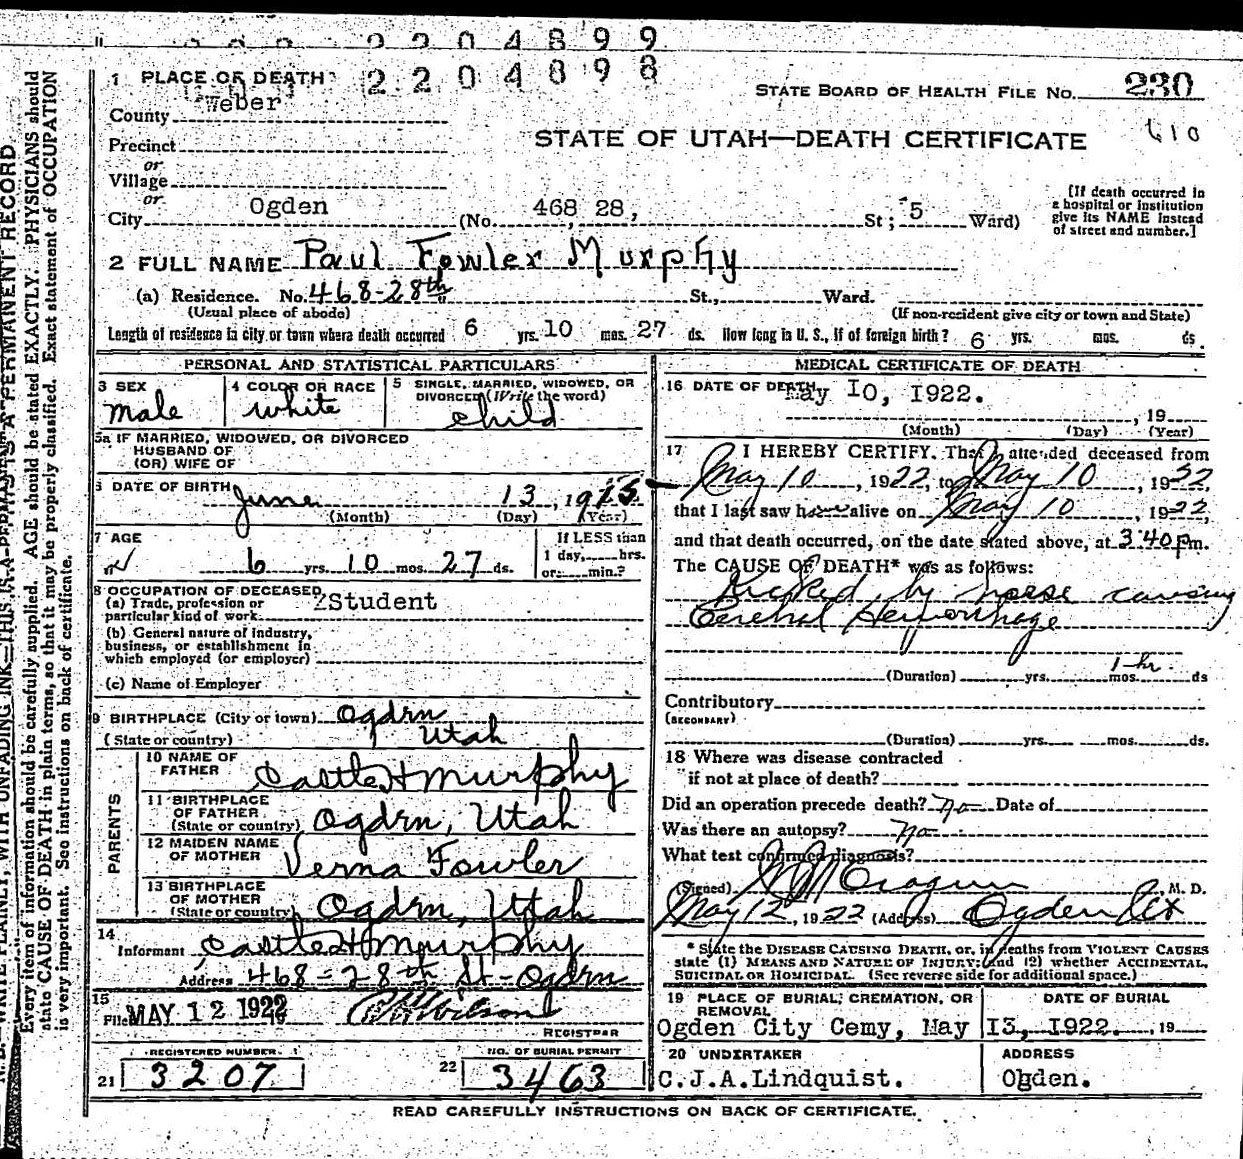 2 2 0 4 8 9 9
1 PLACE OF DEATH 2 2 0 4 8 9 8
STATE BOARD OF HEALTH FILE No. 230
County Weber
STATE OF UTAH—DEATH CERTIFICATE 610
Precinct
or
Village
or
City Ogden (No. 468 28, St; 5 Ward)
[If death occurred in a hospital or institution give its NAME instead of street and number.]
2 FULL NAME Paul Fowler Murphy
(a) Residence. No. 468-28th St., Ward.
(Usual place of abode) (If non-resident give city or town and State)
Length of residence in city or town where death occurred 6 yrs. 10 mos. 27 ds. How long in U. S., if of foreign birth? 6 yrs. mos. ds.
PERSONAL AND STATISTICAL PARTICULARS
3 SEX male
4 COLOR OR RACE white
5 SINGLE, MARRIED, WIDOWED, OR DIVORCED (Write the word) child
5a IF MARRIED, WIDOWED, OR DIVORCED
HUSBAND OF
(OR) WIFE OF
6 DATE OF BIRTH June 13, 1915
(Month) (Day) (Year)
7 AGE 6 yrs. 10 mos. 27 ds.
If LESS than
1 day, hrs.
or min.?
8 OCCUPATION OF DECEASED
(a) Trade, profession or
particular kind of work Student
(b) General nature of industry,
business, or establishment in
which employed (or employer)
(c) Name of Employer
9 BIRTHPLACE (City or town) Ogden
(State or country) Utah
PARENTS
10 NAME OF
FATHER Castle H Murphy
11 BIRTHPLACE
OF FATHER
(State or country) Ogden, Utah
12 MAIDEN NAME
OF MOTHER Verna Fowler
13 BIRTHPLACE
OF MOTHER
(State or country) Ogden, Utah
14
Informant Castle H Murphy
Address 468-28th St-Ogden
15
Filed MAY 12 1922 Wilson
REGISTRAR
REGISTERED NUMBER
21 3207
NO. OF BURIAL PERMIT
22 3463
MEDICAL CERTIFICATE OF DEATH
16 DATE OF DEATH May 10, 1922.
, 19
(Month) (Day) (Year)
17 I HEREBY CERTIFY, That I attended deceased from
May 10, 1922, to May 10, 1922,
that I last saw h alive on May 10, 1922,
and that death occurred, on the date stated above, at 3:40 pm.
The CAUSE OF DEATH* was as follows:
Kicked by horse causing
Cerebral Hemorrhage
1 hr.
(Duration) yrs. mos. ds
Contributory
(SECONDARY)
(Duration) yrs. mos. ds.
18 Where was disease contracted
if not at place of death?
Did an operation precede death? no Date of
Was there an autopsy? no
What test confirmed diagnosis?
(Signed) , M. D.
May 12, 1922 (Address) Ogden
* State the DISEASE CAUSING DEATH, or, in deaths from VIOLENT CAUSES
state (1) MEANS AND NATURE OF INJURY; and (2) whether ACCIDENTAL,
SUICIDAL OR HOMICIDAL. (See reverse side for additional space.)
19 PLACE OF BURIAL, CREMATION, OR
REMOVAL
Ogden City Cemy,
DATE OF BURIAL
May 13, 1922. , 19
20 UNDERTAKER
C.J.A.Lindquist.
ADDRESS
Ogden.
READ CAREFULLY INSTRUCTIONS ON BACK OF CERTIFICATE.
N. B. WRITE PLAINLY, WITH UNFADING INK—THIS IS A PERMANENT RECORD.
Every item of information should be carefully supplied. AGE should be stated EXACTLY. PHYSICIANS should
state CAUSE OF DEATH in plain terms, so that it may be properly classified. Exact statement of OCCUPATION
is very important. See instructions on back of certificate.